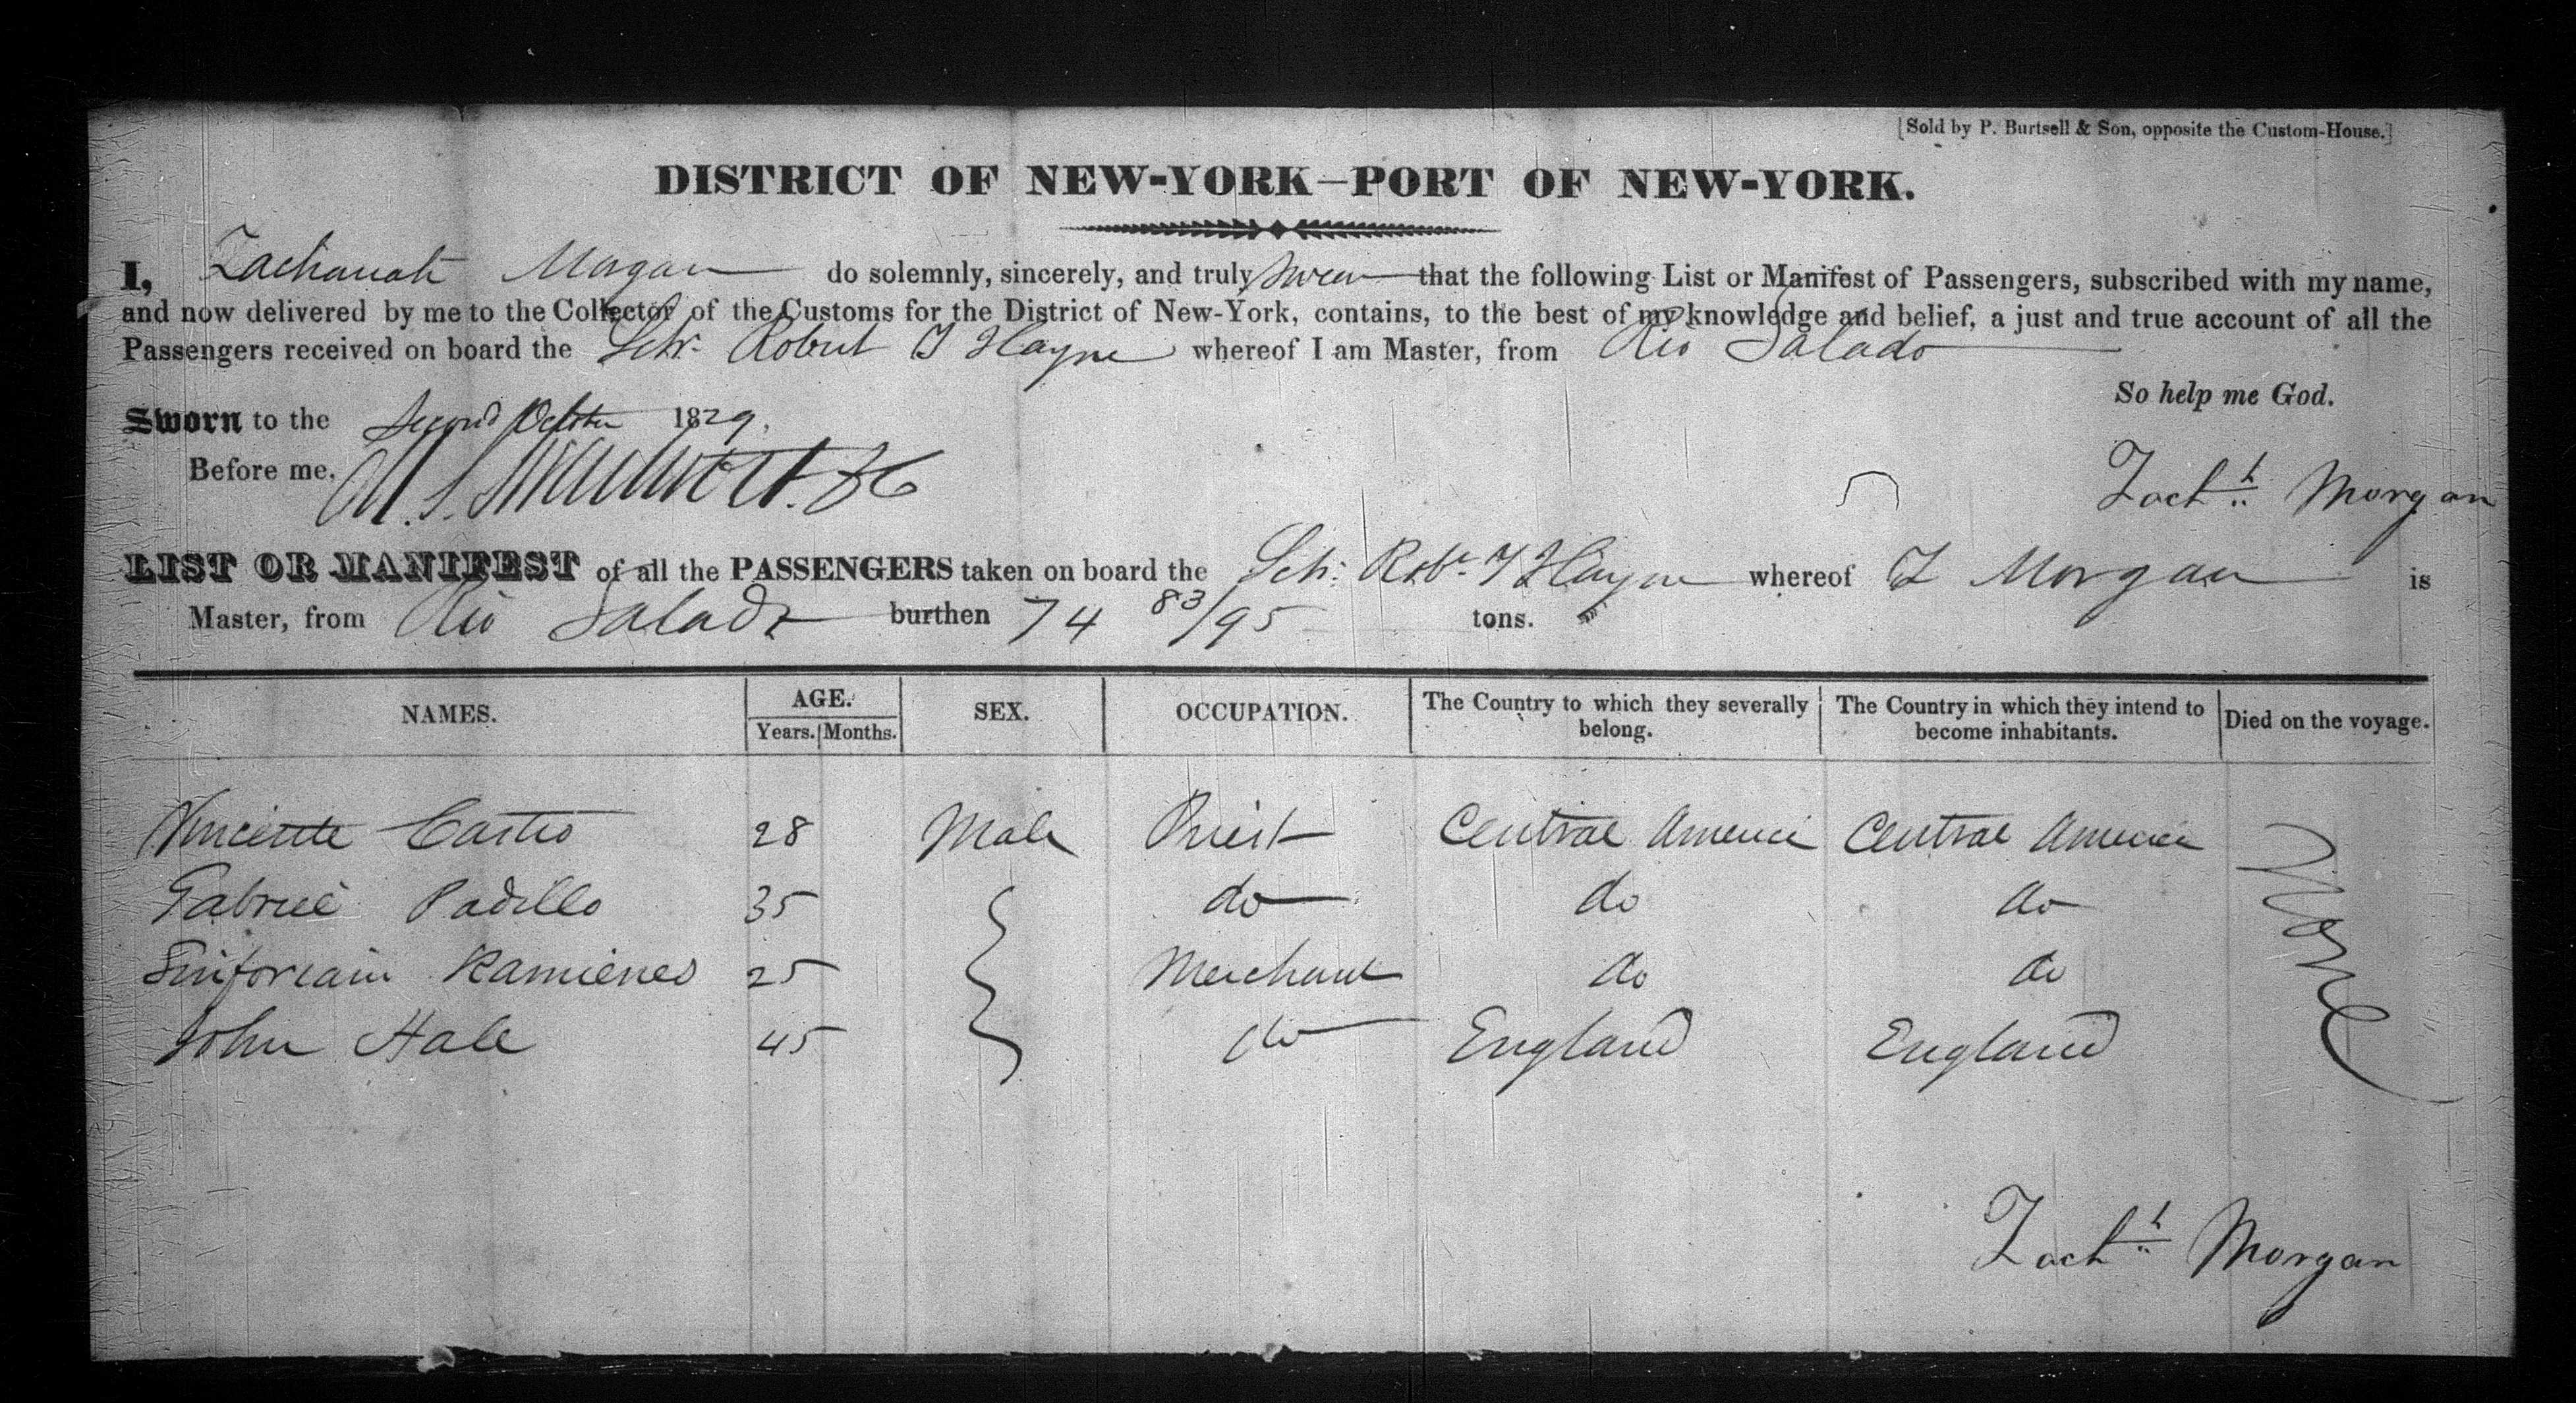 [Sold by P. Burtsell & Son, opposite the Custom-House.]
DISTRICT OF NEW-YORK—PORT OF NEW-YORK.
I, Zachariah Morgan do solemnly, sincerely, and truly swear that the following List or Manifest of Passengers, subscribed with my name,
and now delivered by me to the Collector of the Customs for the District of New-York, contains, to the best of my knowledge and belief, a just and true account of all the
Passengers received on board the Schr. Robert Y Hayne whereof I am Master, from Rio Salado
So help me God.
Sworn to the Second October 1829.
Before me,
Zachh Morgan
LIST OR MANIFEST of all the PASSENGERS taken on board the Schr: Robt Y Hayne whereof Z Morgan is
Master, from Rio Salado burthen 74 83/95 tons.
NAMES. AGE. SEX. OCCUPATION. The Country to which they severally belong. The Country in which they intend to become inhabitants. Died on the voyage.
Years. Months.
Vincente Castro 28 Male Priest Central America Central America None
Gabriel Padillo 35 do do do
25 Merchant do do
John Hale 45 do England England
Zachh Morgan